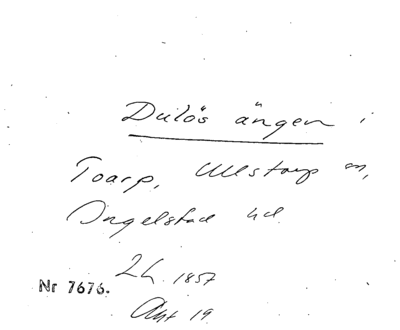 Dulös ängen i
Toarp, Ullstorp sn,
Ingelstad hd
LL 1857
Nr 7676.
Akt 19